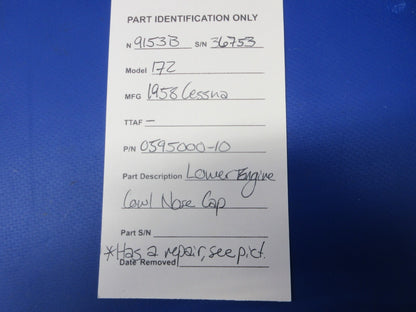 PART IDENTIFICATION ONLY
N 9153B S/N 36753
Model 172
MFG 1958 Cessna
TTAF —
P/N 0595000-10
Part Description Lower Engine
Cowl Nose Cap
Part S/N
*Has a repair, see pict.
Date Removed